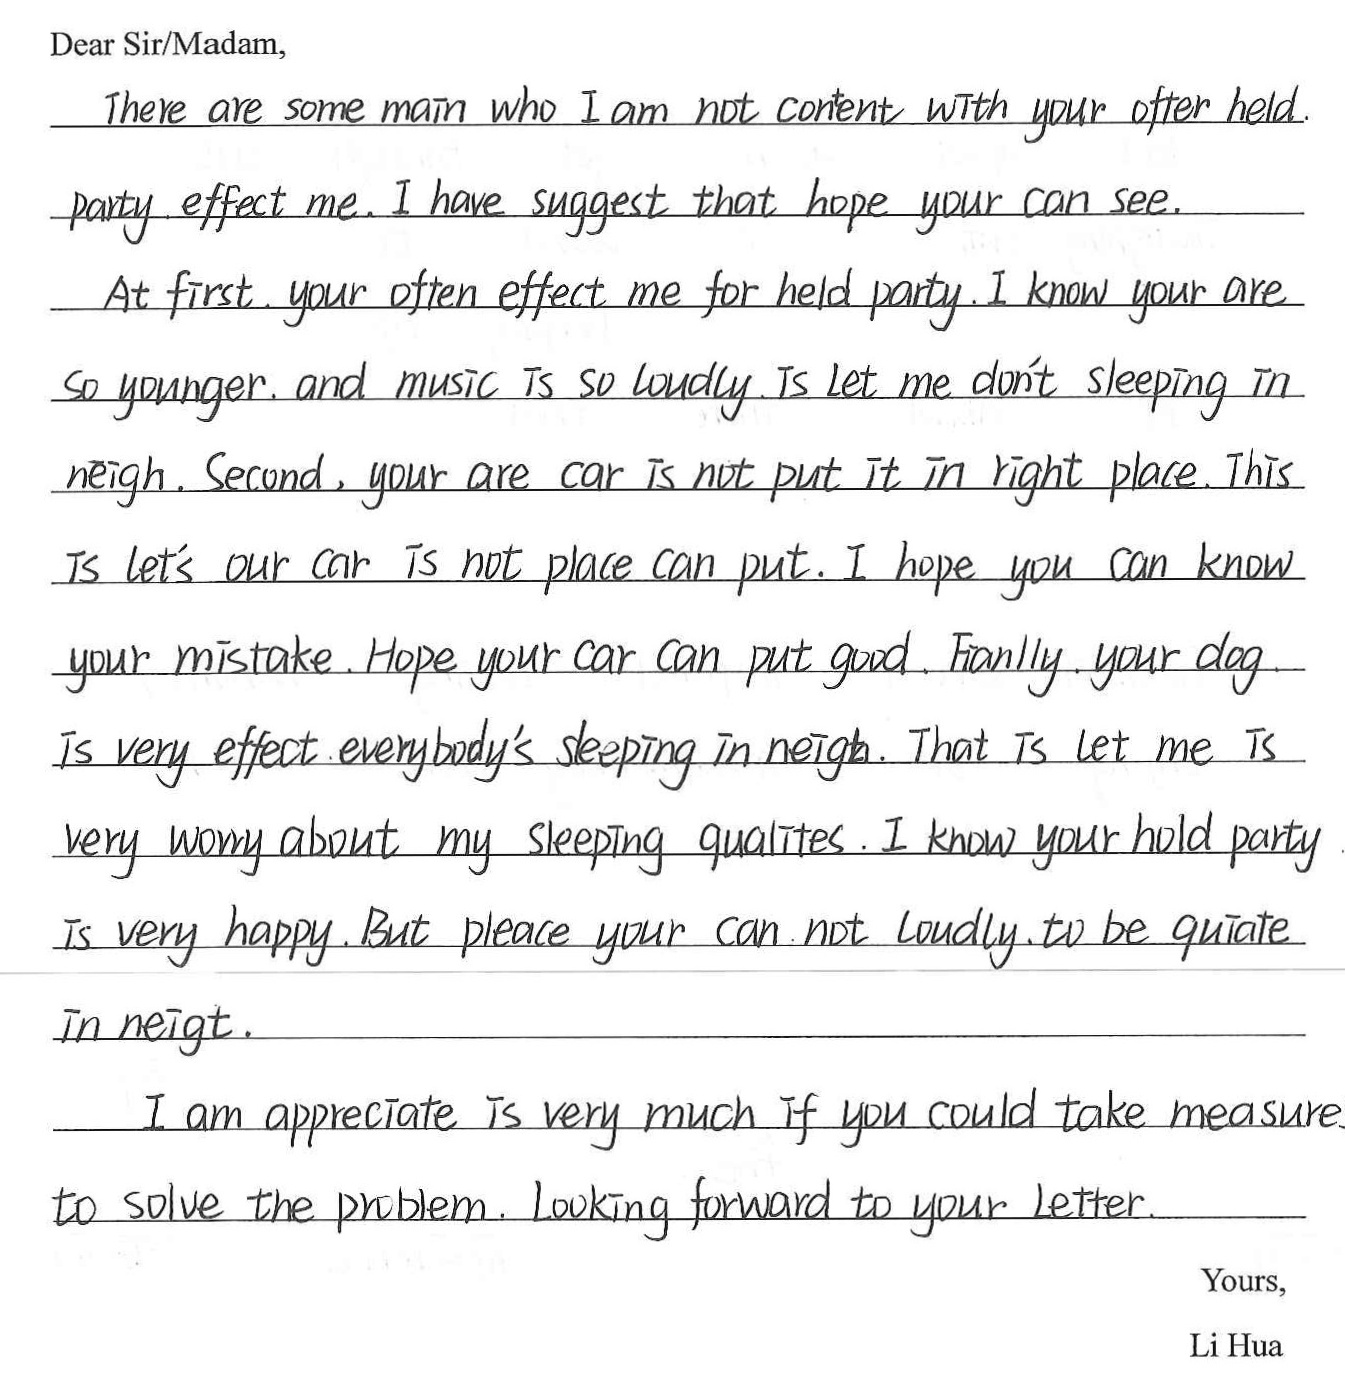 Dear Sir/Madam,
There are some main who I am not content with your ofter held.
party effect me. I have suggest that hope your can see.
At first. your often effect me for held party. I know your are
so younger. and music is so loudly. is let me don't sleeping in
neigh. Second, your are car is not put it in right place. This
is let's our car is not place can put. I hope you can know
your mistake. Hope your car can put good. Fianlly. your dog
is very effect everybody's sleeping in neigh. That is let me is
very worry about my sleeping qualites. I know your hold party
is very happy. But pleace your can not loudly. to be quiate
in neigt.
I am appreciate is very much if you could take measures
to solve the problem. Looking forward to your letter.
Yours,
Li Hua